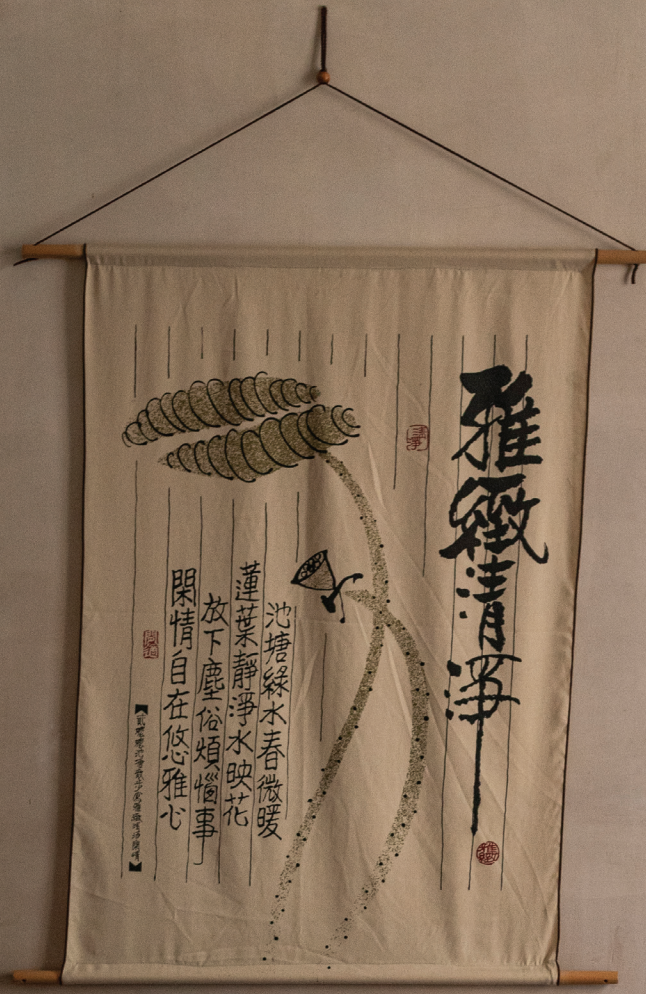 雅緻清淨
池塘綠水春微暖
蓮葉靜淨水映花
放下塵俗煩惱事
閑情自在悠雅心